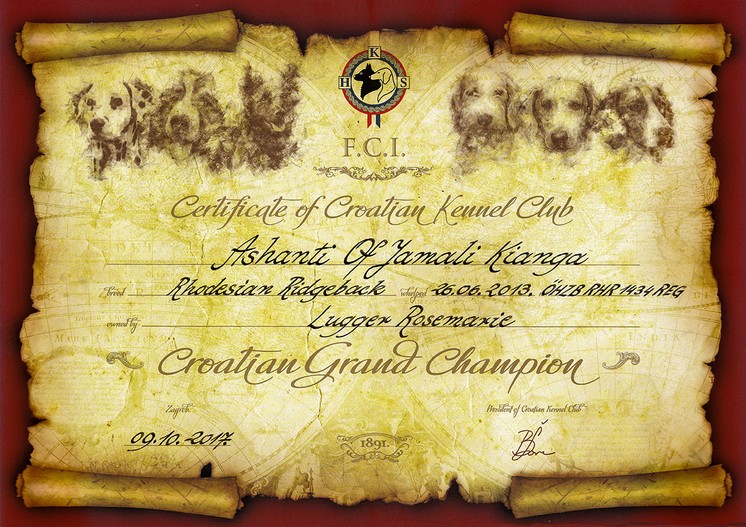 K
H S
F.C.I.
Certificate of Croatian Kennel Club
Ashanti Of Yamali Kianga
breed Rhodesian Ridgeback whelped 26.06.2013. ÖHZB RHR 1434 REG
owned by Lugger Rosemarie
Croatian Grand Champion
Zagreb, President of Croatian Kennel Club
09.10.2017.
1891.